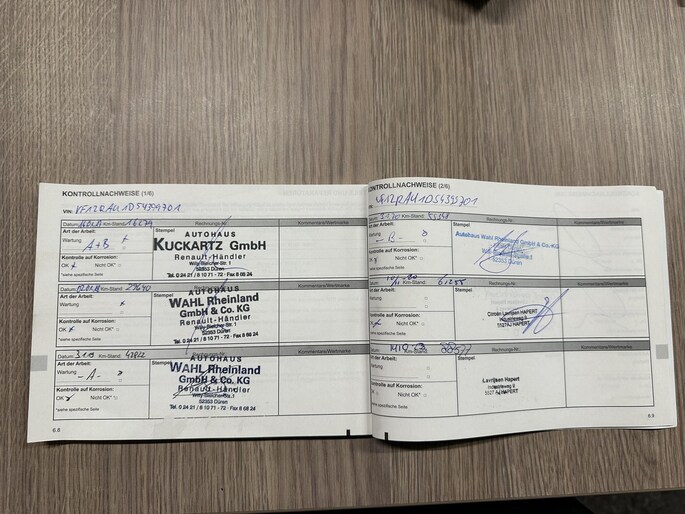 KONTROLLNACHWEISE (1/6)
VIN: VF12RAU1D54399701
Datum: Km-Stand: Rechnungs-Nr.: Kommentare/Werbmarke
Art der Arbeit:
Wartung A+B
Kontrolle auf Korrosion:
OK Nicht OK*
*siehe spezifische Seite
Stempel
AUTOHAUS
KUCKARTZ GmbH
Renault-Händler
Willy-Bleicher-Str. 1
52353 Düren
Tel. 0 24 21 / 8 10 71 - 72 · Fax 8 68 24
Datum: Km-Stand: 29640 Rechnungs-Nr.:
Art der Arbeit:
Wartung
Kontrolle auf Korrosion:
OK Nicht OK*
*siehe spezifische Seite
Stempel
AUTOHAUS
WAHL Rheinland
GmbH & Co. KG
Renault-Händler
Willy-Bleicher-Str. 1
52353 Düren
Tel. 0 24 21 / 8 10 71 - 72 · Fax 8 68 24
Datum: Km-Stand: Rechnungs-Nr.:
Art der Arbeit:
Wartung -A-
Kontrolle auf Korrosion:
OK Nicht OK*
*siehe spezifische Seite
Stempel
AUTOHAUS
WAHL Rheinland
GmbH & Co. KG
Renault-Händler
Willy-Bleicher-Str. 1
52353 Düren
Tel. 0 24 21 / 8 10 71 - 72 · Fax 8 68 24
6.8
KONTROLLNACHWEISE (2/6)
Km-Stand: Rechnungs-Nr.: Kommentare/Werbmarke
Art der Arbeit:
Wartung -B-
Kontrolle auf Korrosion:
Nicht OK*
*siehe spezifische Seite
Stempel
Autohaus Wahl Rheinland GmbH & Co. KG
52353 Düren
Km-Stand: 61255
Art der Arbeit:
Wartung
Kontrolle auf Korrosion:
Nicht OK*
Stempel
Citroën Lavrijsen HAPERT
Industrieweg 9
5527AJ HAPERT
Art der Arbeit:
Wartung
Kontrolle auf Korrosion:
Nicht OK*
Stempel
Lavrijsen Hapert
Industrieweg 9
5527 AJ HAPERT
6.9